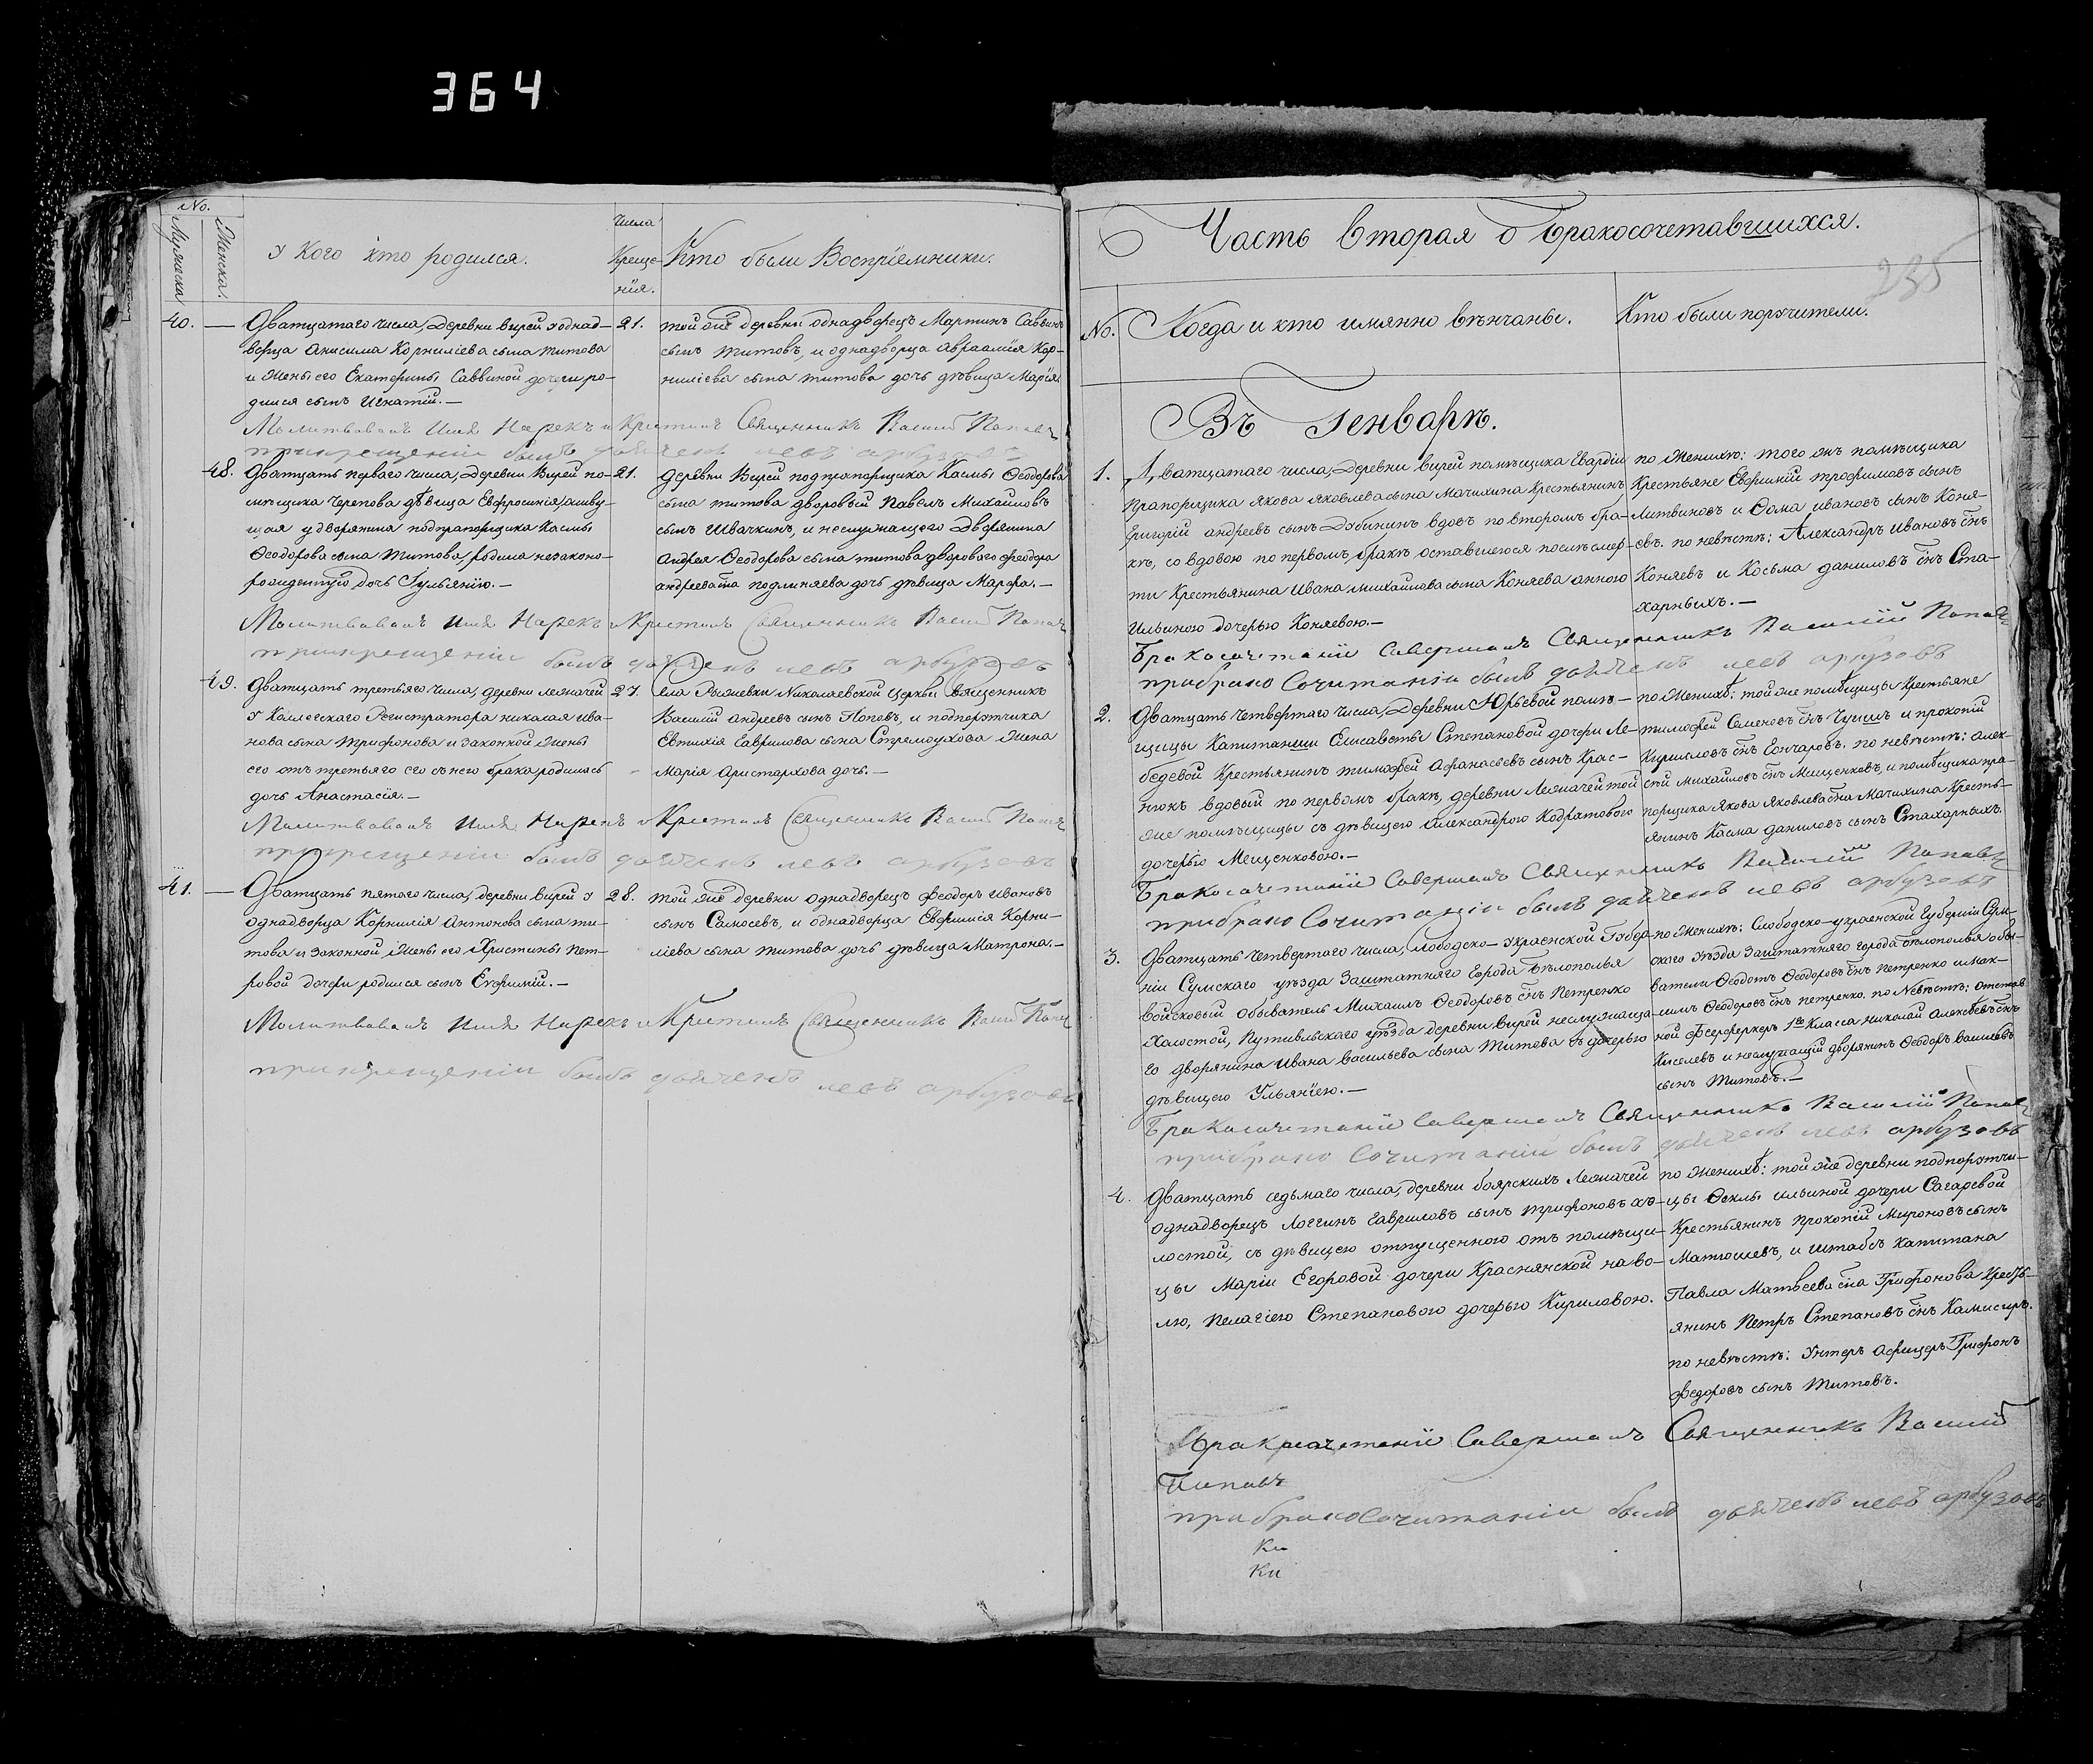 364
No.
Мужеска
Женска.
у кого кто родился.
Числа
Креще-
нїя.
Кто были Воспрїемники.
40. — Дватцатаго числа, Деревни вирей у однад-
ворца Анисима Корнилїева сына титова
и жены его Екатерины Саввиной дочери ро-
дился сынъ Игнатїй.—
21.
той же деревни однадворецъ Мартинъ Саввинъ
сынъ титовъ, и однадворца Авраамїя Кор-
нилїева сына титова дочь дѣвица Марїя
Молитвовалъ Имя Нарекъ и Крестилъ Священникъ Василий Поповъ
прикрещении былъ дьяченъ левъ арбузовъ
48. Дватцать перваго числа, Деревни Вирей по-
мѣщика Черепова дѣвица Евфросинїя, живу-
щая у дворянина подпрапорщика Касмы
Ѳеодорова сына Титова, родила незаконо-
рожденную дочь Іульянїю.—
21.
деревни Вирей подпрапорщика Касмы Ѳеодорова
сына титова дворовый Павелъ Михайловъ
сынъ Швачкинъ, и неслужащего Дворянина
Андрея Ѳеодорова сына титова дворового феодора
андреева сна подлиняева дочь дѣвица Марфа.—
Молитвовалъ Имя Нарекъ и Крестилъ Священникъ Василий Поповъ
прикрещении былъ дьяченъ левъ арбузовъ
49. Дватцать третьяго числа, деревни лежачей
у Коллегскаго Регистратора николая ива-
нова сына трифонова и законной жены
его отъ третьяго его съ нею брака родилась
дочь Анастасїя.—
27.
Села Рыжевки Николаевской церкви священникъ
Василий андреевъ сынъ Поповъ, и подпорутчика
Евтихїя Гаврилова сына Стремоухова жена
Марїя Аристархова дочь.—
Молитвовалъ Имя Нарекъ и Крестилъ Священникъ Василий Поповъ
прикрещении былъ дьяченъ левъ арбузовъ
41. — Дватцать пятаго числа, деревни вирей у
однадворца Корнилїя Антонова сына ти-
това и законной жены его Христины Пет-
ровой дочери родился сынъ Евфимїй.—
28.
той же деревни однадворецъ Феодоръ Ивановъ
сынъ Самосевъ, и однадворца Евфимїя Корни-
лїева сына титова дочь дѣвица Матрона.—
Молитвовалъ Имя Нарекъ и Крестилъ Священникъ Василий Поповъ
прикрещении былъ дьяченъ левъ арбузовъ
Часть вторая о Бракосочетавшихся.
235
No.
Когда и кто имянно вѣнчаны.
Кто были поручители.
Въ Генварѣ.
1. Дватцатаго числа, Деревни вирей помѣщика Гвардїи
Прапорщика Якова Яковлева сына Мачихина Крестьянинъ
Григорїй андреевъ сынъ Дубининъ вдовъ по второмъ бра-
кѣ, со вдовою по первомъ бракѣ оставшеюся послѣ смер-
ти Крестьянина Ивана Михайлова сына Коняева анною
Ильиною дочерью Коняевою.—
по Женихѣ: того жъ помѣщика
Крестьяне Евфимїй трофимовъ сынъ
Литвиновъ и Ѳома ивановъ сынъ Коня-
евъ. по невѣстѣ: Александръ Ивановъ снъ
Коняевъ и Косьма даниловъ снъ Ста-
харныхъ.—
Бракосочетанїе Совершалъ Священникъ Василїй Поповъ
прибрако Сочитанїи былъ дьяченъ левъ арбузовъ
2. Дватцать Четвертаго числа, Деревни Юрьевой помѣ-
щицы Капитанши Елисаветы Степановой дочери Ле-
бедевой Крестьянинъ тимофей Афанасьевъ сынъ Крас-
нюкъ вдовый по первомъ бракѣ, деревни Лежачей той
же помѣщицы съ дѣвицею Александрою Кодратовою
дочерью Мещенковою.—
по Женихѣ: той же помѣщицы Крестьяне
тимофей Семеновъ снъ Чуишъ и прокопїй
Кириловъ снъ Гончаровъ. по невѣстѣ: алек-
сѣй михайловъ снъ Мещенковъ, и помѣщика пра-
порщика Якова Яковлева сна Мачихина Кресть-
янинъ Касма даниловъ сынъ Стахарныхъ.
Бракосочетанїе Совершалъ Священникъ Василїй Поповъ
прибрако Сочитанїи былъ дьяченъ левъ арбузовъ
3. Дватцать Четвертаго числа, Слободско-украенской Губер-
нїи Сумскаго уѣзда Заштатняго города Бѣлополья
войсковый обыватель Михаилъ Ѳеодоровъ снъ Петренко
Холостой, Путивльскаго уѣзда деревни вирей неслужаща-
го дворянина ивана васильева сына Титова съ дочерью
дѣвицею Ульянїею.—
по Женихѣ: Слободско-украенской Губернїи Сум-
скаго уѣзда Заштатняго города Бѣлополья обы-
ватели Ѳеодотъ Ѳеодоровъ снъ Петренко и Мак-
симъ Ѳеодоровъ снъ петренко. по Невѣстѣ: отстав
ной Феерферкеръ 1го Класса николай Алексѣевъ снъ
Киселевъ и неслужащїй дворянинъ Ѳеодоръ васильевъ
сынъ Титовъ.—
Бракосочетанїе Совершалъ Священникъ Василїй Поповъ
прибрако Сочитанїи былъ дьяченъ левъ арбузовъ
4. Дватцать седьмаго числа, деревни боярскихъ Лежачей
однадворецъ Логгинъ Гавриловъ сынъ трифоновъ хо-
лостой, съ дѣвицею отпущенною отъ помѣщи-
цы Марїи Егоровой дочери Краснянской на во-
лю, Пелагїею Степановою дочерью Кириловою.
по Женихѣ: той же деревни подпорутчи-
цы Ѳеклы ильиной дочери Сагаревой
Крестьянинъ прокопїй Мироновъ сынъ
Матюшевъ, и штабсъ Капитана
Павла Матвѣева сна Трифонова Кресть-
янинъ Петръ Степановъ снъ Камисаръ.
по невѣстѣ: Унтеръ Афицеръ Трифонъ
Федоровъ сынъ Титовъ.
Бракосочетанїе Совершалъ Священникъ Василїй
Поповъ
прибракоСочитанїи былъ дьяченъ левъ арбузовъ
Ки
Ки